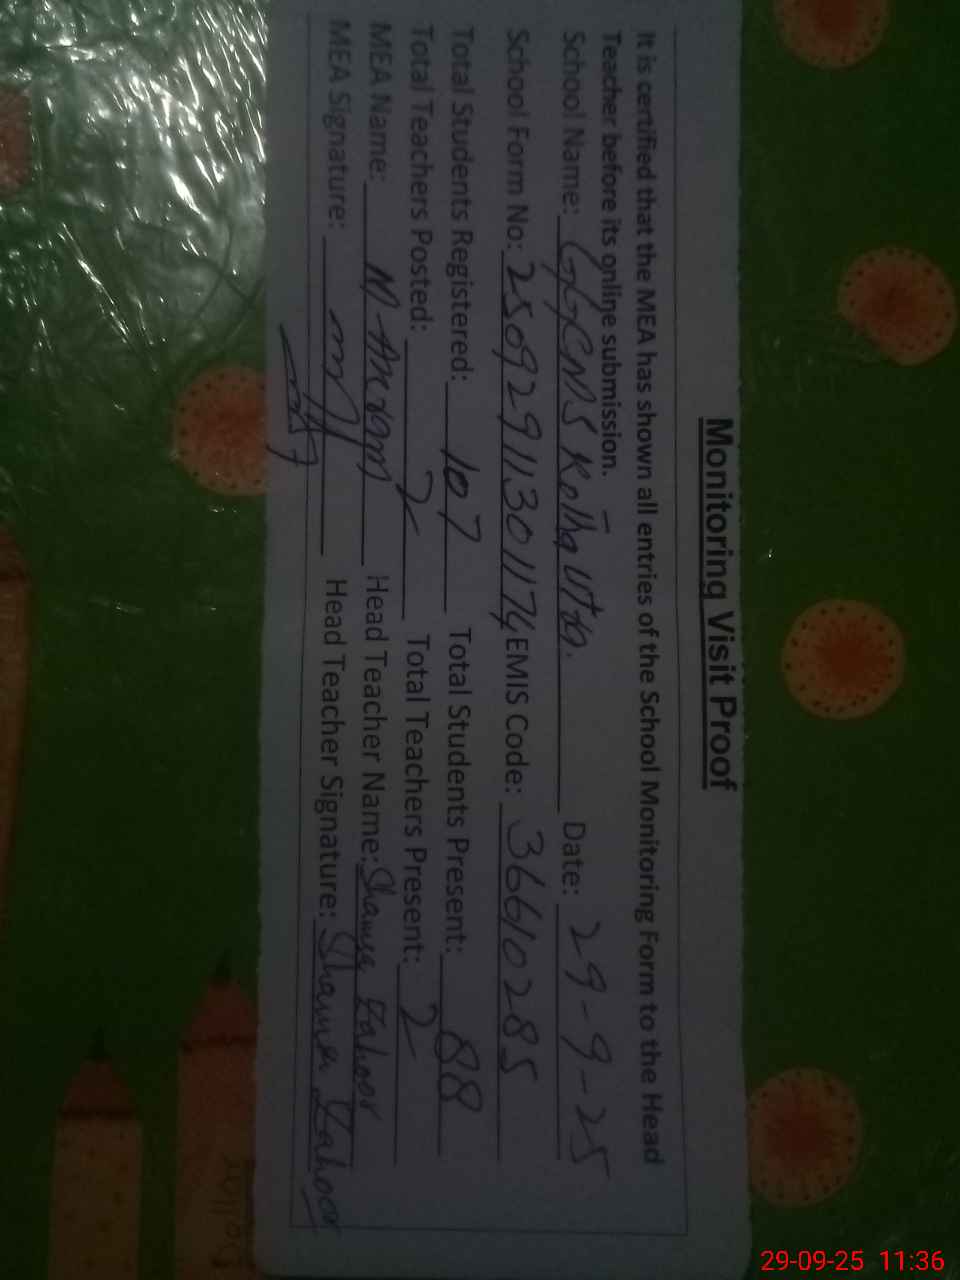 Monitoring Visit Proof
It is certified that the MEA has shown all entries of the School Monitoring Form to the Head
Teacher before its online submission.
School Name: Date: 29-9-25
School Form No: 25092911301174 EMIS Code: 36610285
Total Students Registered: 107 Total Students Present: 88
Total Teachers Posted: 2 Total Teachers Present: 2
MEA Name: M Akram Head Teacher Name: Shamsa Zahoor
MEA Signature: Head Teacher Signature: Shamsa Zahoor
29-09-25 11:36